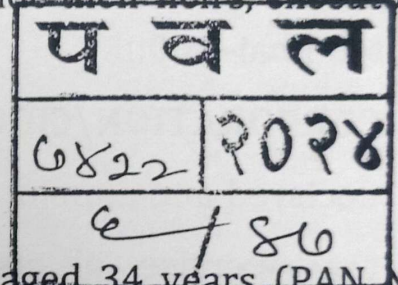 प व ल
७४२२ २०२४
/ ४७
aged 34 years (PAN